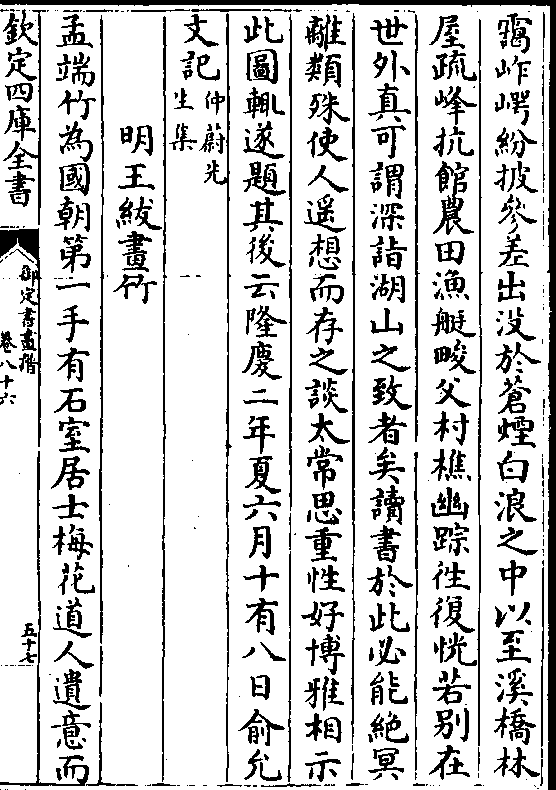 靄岝崿紛披參差出没於蒼煙白浪之中以至溪橋林
屋疏峰抗館農田漁艇畯父村樵幽踪徃復恍若别在
世外真可謂深詣湖山之致者矣讀書於此必能絶冥
離類殊使人遥想而存之談太常思重性好博雅相示
此圖輒遂題其後云隆慶二年夏六月十有八日俞允
文記仲蔚先生集
明王紱畫竹
孟端竹為國朝第一手有石室居士梅花道人遺意而
欽定四庫全書
御定書畫譜
卷八十六
五十七